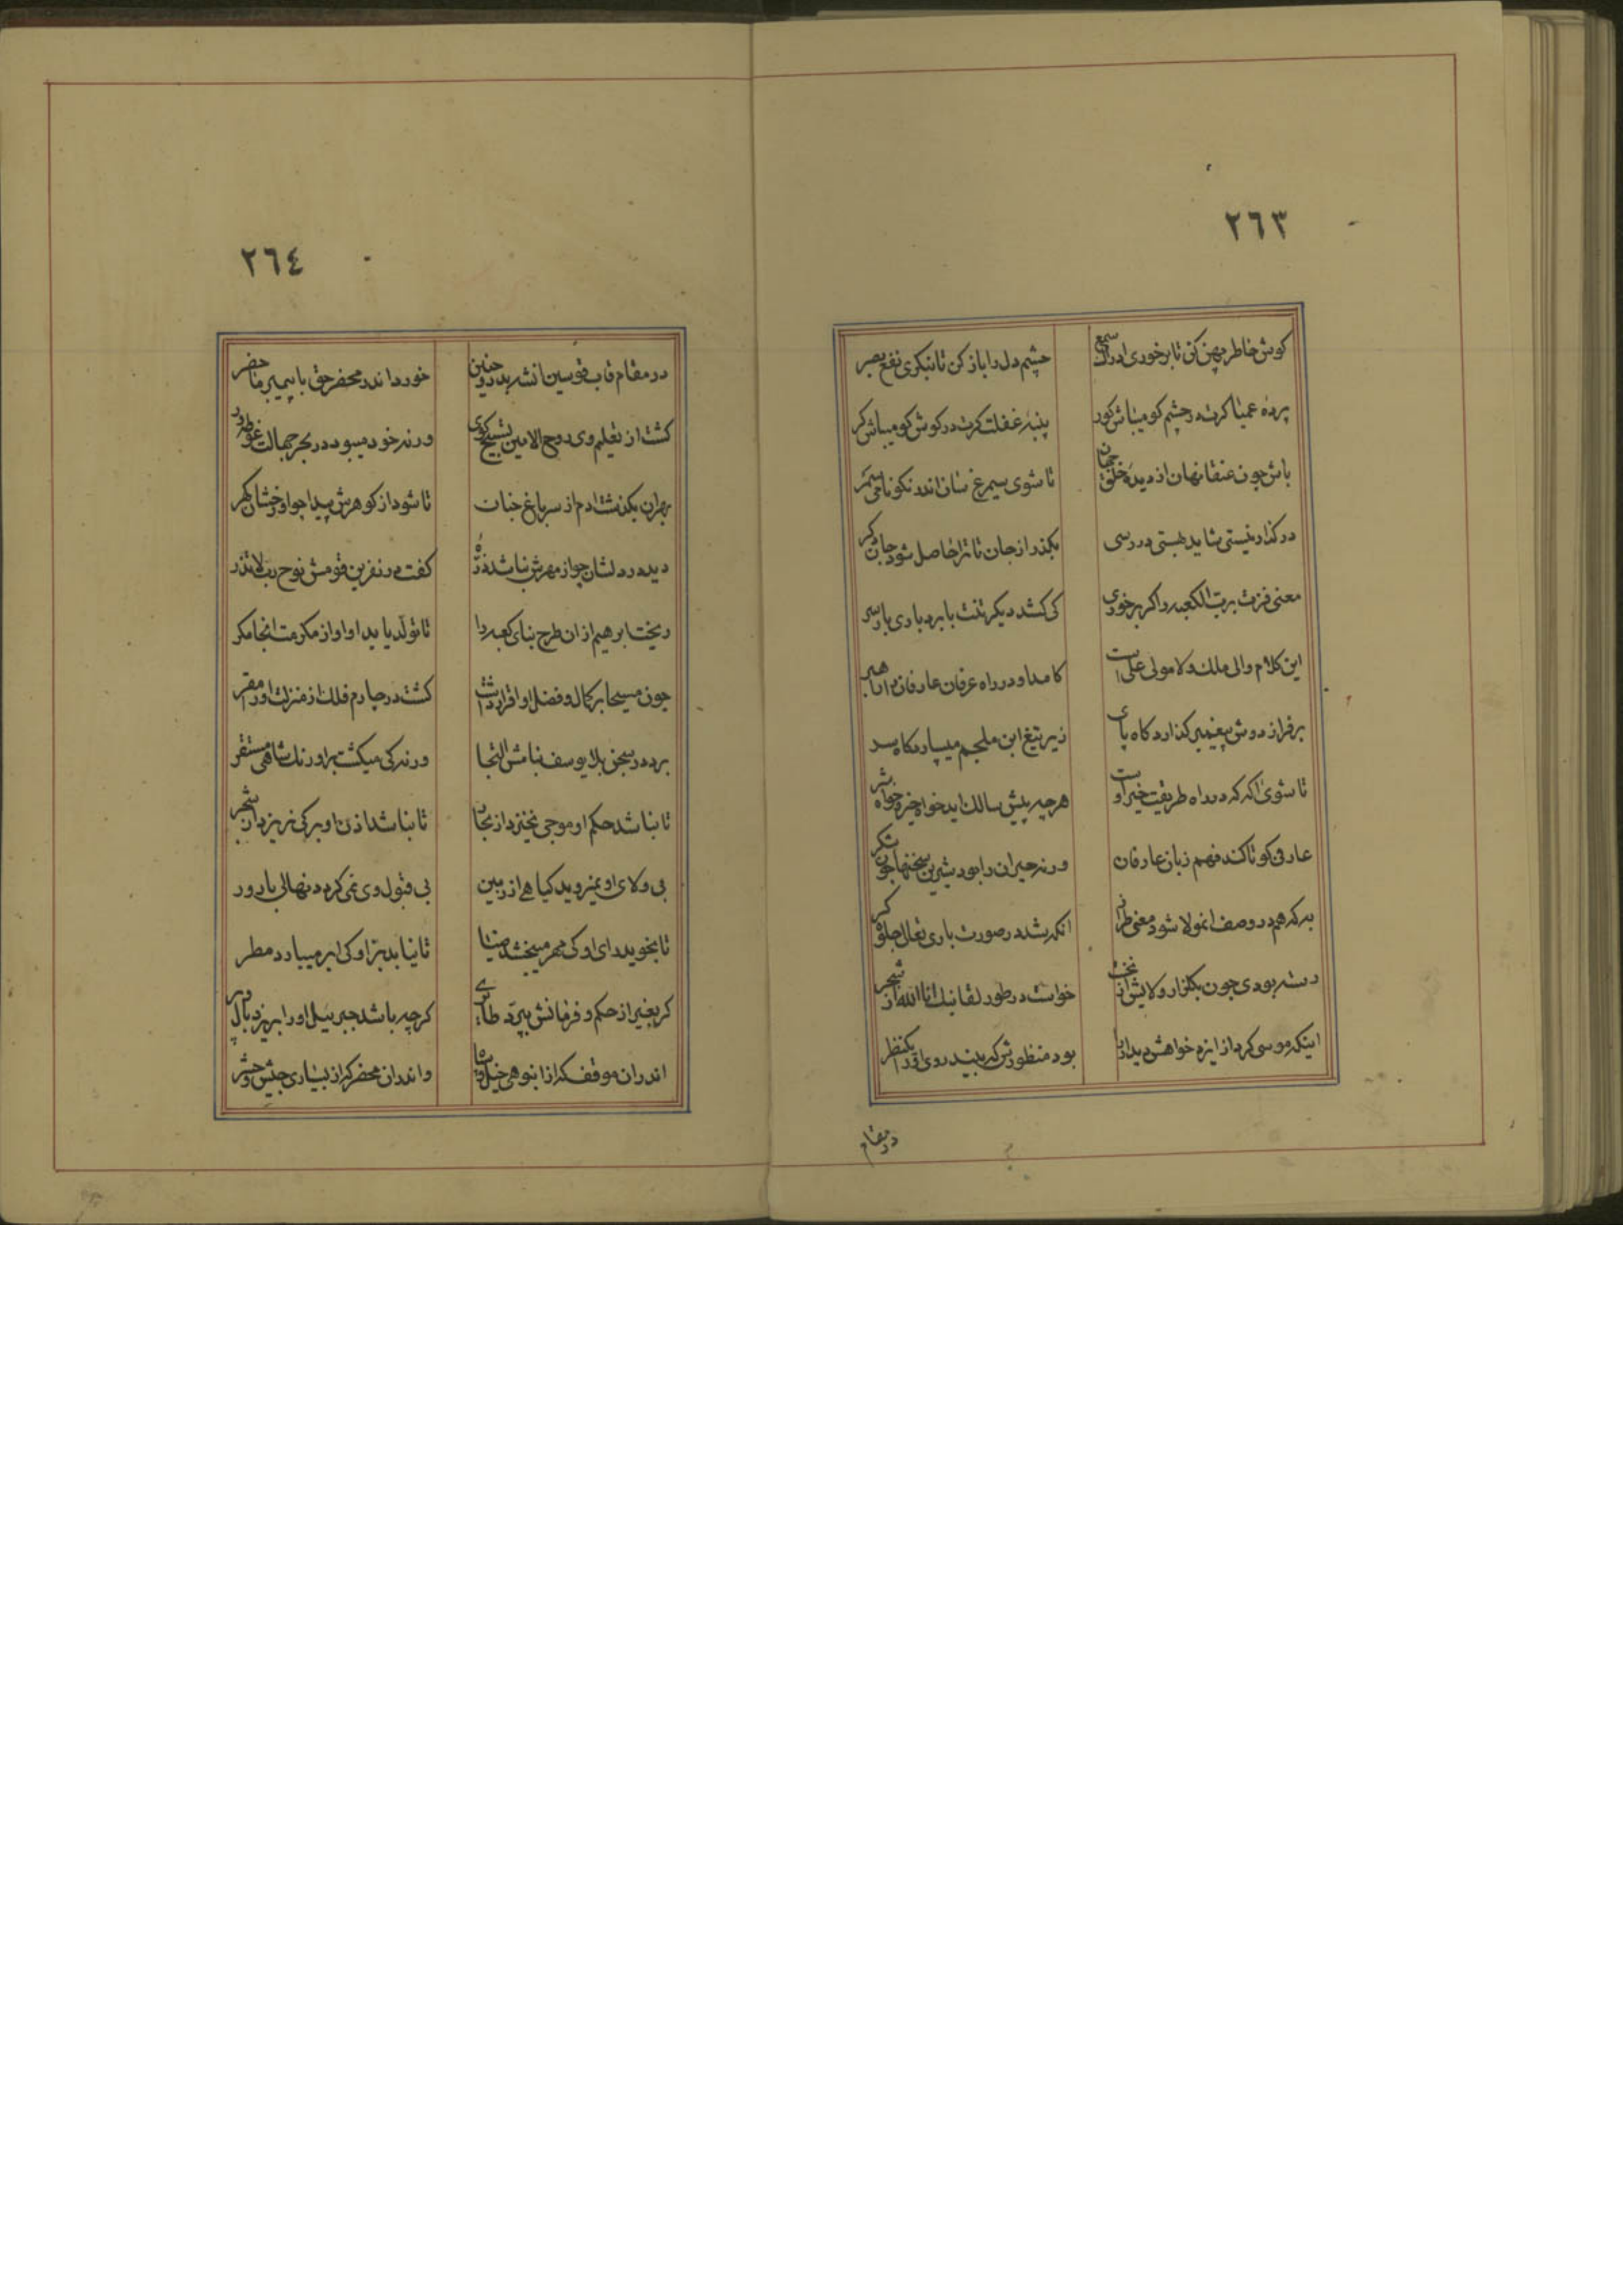 ٢٦٣
كوش خاطر پهن كن تا برخوری ز ادراك سمع
چشم دل را باز كن تا بنكری نفع بصر
پرده عميا كرت در چشم كو ميباش كور
پنبه غفلت كرت در كوش كو ميباش كر
باش چون عنقا نهان از ديده خلق جهان
تا شوی سيمرغ سان اندر نكونامی سمر
در كنار نيستی شايد بهستی در رسی
بكذر از جان تا ترا حاصل شود جان دكر
معنی فزت برب الكعبه را كر برخوری
كی كشد ديكر تنت با بردباری بار سر
اين كلام والی ملك ولا مولی علی است
كامد او در راه عرفان عارفان را راهبر
بر فراز دوش پيغمبر كذارد كاه پای
زير تيغ ابن ملجم ميسپارد كاه سر
تا شوی اكه كه در راه طريقت خير اوست
هر چه پيش سالك ايد خواه خير و خواه شر
عارفی كو تا كند فهم زبان عارفان
ورنه حيران را بود شيرين سخنها چون شكر
به كه هم در وصف انمولا شود معنی طراز
انكه شد در صورت باری تعالی جلوه كر
دسته بودی چون بكلزار ولايش از نخست
خواست در طور لقا نيك انا الله از شجر
اينكه موسی كرد از ايزد خواهش ديدار را
بود منظورش كه بيند روی او را يكنظر
در مقام
٢٦٤
در مقام قاب قوسين انشه بدر و حنين
خورد اندر محضر حق با پيمبر ما حضر
كشت از تعليم وی روح الامين تسبيح كوی
ورنه خود ميبود در بحر جهالت غوطه ور
بهر ان بكذشت ادم از سر باغ جنات
تا شود از كوهرش پيدا چو او رخشان كهر
ديد در دلشان چو از مهرش نباشد ذره
كفت در نفرين قومش نوح رب لا تذر
ريخت ابرهيم از ان طرح بنای كعبه را
تا تولد يابد او از مكرمت انجا مكر
چون مسيحا بر كمال و فضل او اقرار داشت
كشت در چارم فلك از منزلت او را مقر
برد در سجن بلا يوسف بنامش التجا
ورنه كی ميكشت بر اورنك شاهی مستقر
تا نباشد حكم او موجی نخيزد از بحار
تا نباشد اذن او بركی نريزد از شجر
بی ولای او نميرويد كياهی از زمين
بی قبول وی نمی كردد نهالی بارور
تا نجويد رای او كی مهر ميبخشد ضيا
تا نيابد بذر او كی ابر ميبارد مطر
كر بغير از حكم و فرمانش بپرد طايری
كرچه باشد جبرئيل او را بريزد بال و پر
اندران موقف كه از انبوهی خيل
واندران محضر كه از بسياری جيش و حشر